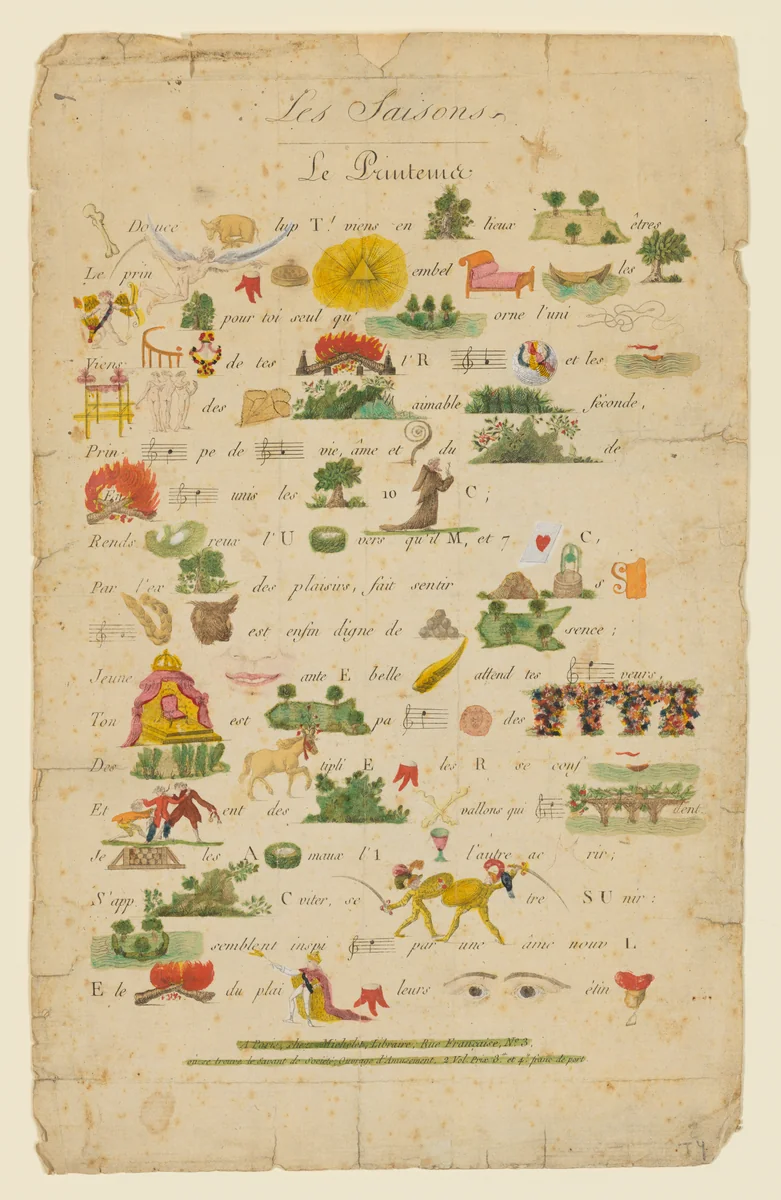 Les Saisons
Le Printems
Douce lup T! viens en lieux êtres
Le prin embel les
pour toi seul qu' orne l'uni
Viens de tes l'R et les
des aimable féconde,
Prin pe de vie, âme et du de
unis les 10 C;
Rends reux l'U vers qu'il M, et 7 C,
Par l'ex des plaisirs, fait sentir s
est enfin digne de sence;
Jeune ante E belle, attend tes veurs,
Ton est pa des
Des tipli E les R se conf
Et ent des vallons qui dent
Je les A maux l'1 l'autre ac rir;
S'app C viter, se tre S U nir:
semblent inspi par une âme nouv L
E le du plai leurs étin
A Paris, chez Michelet, Libraire, Rue Française, N.º 3,
où se trouve le Savant de Société, Ouvrage d'Amusement, 2 Vol. Prix 3.f et 4.f franc de port